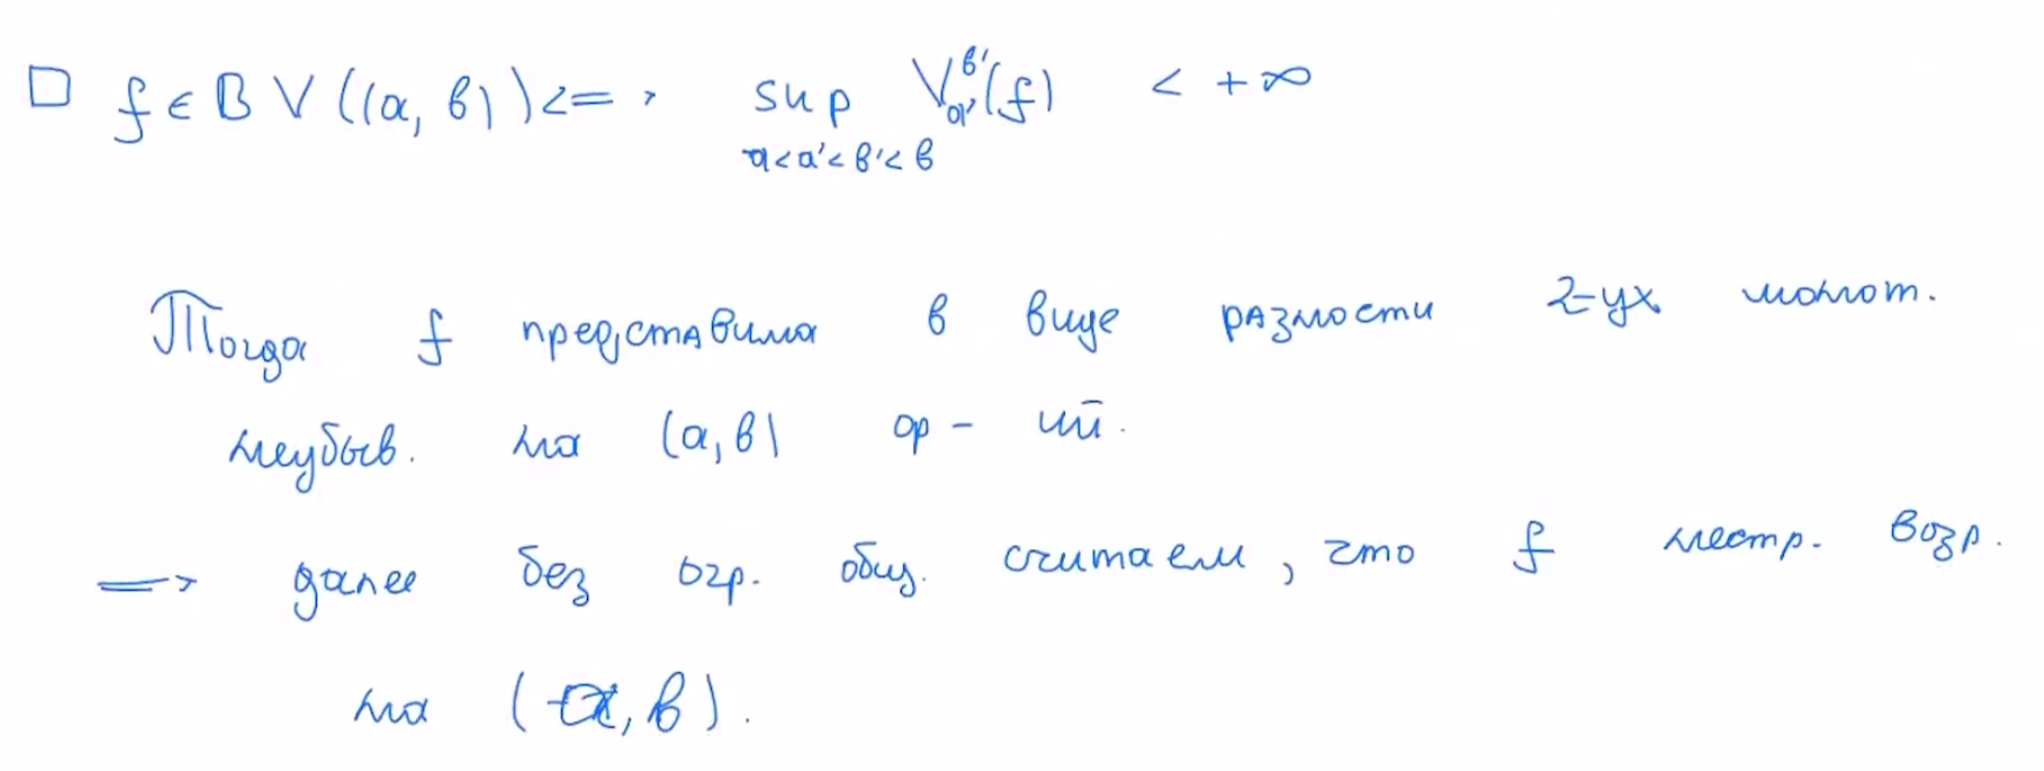 □ f ∈ BV((a, b)) <=> sup V_{a'}^{b'}(f) < +∞
a<a'<b'<b
Тогда f представима в виде разности 2-ух монот.
неубыв. на (a, b) ф-ий.
=> далее без огр. общ. считаем, что f нестр. возр.
на (a, b).